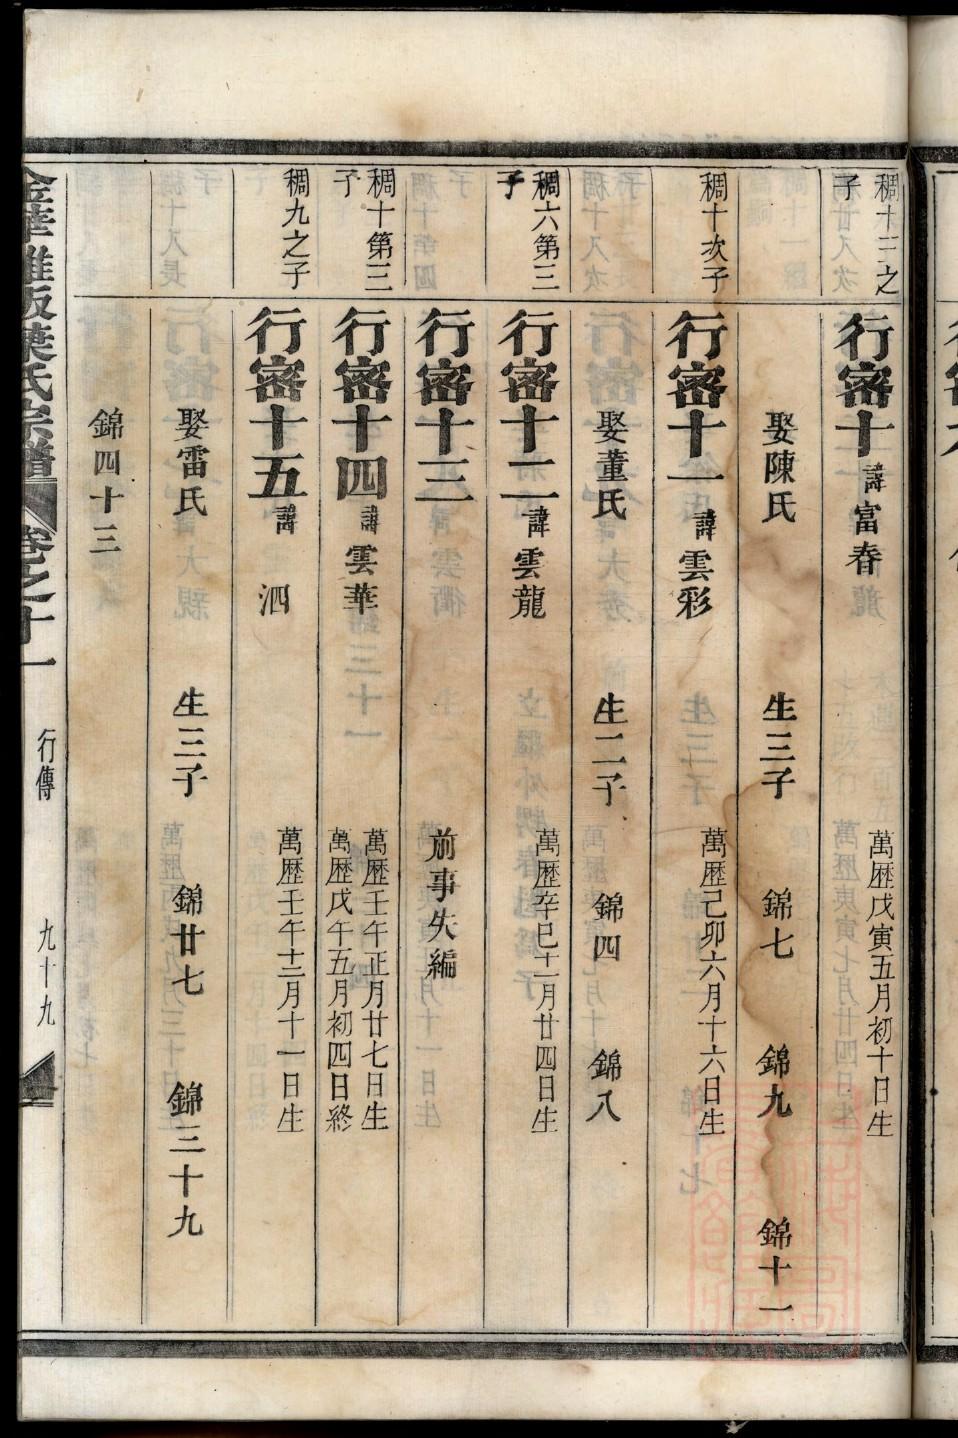 稠十三之子
行密十諱富春
萬歴戊寅五月初十日生
娶陳氏 生三子 錦七 錦九 錦十一
稠十次子
行密十一諱雲彩
萬歴己卯六月十六日生
娶董氏 生二子 錦四 錦八
稠六第三子
行密十二諱雲龍
萬歴辛巳十二月廿四日生
行密十三
前事失編
稠十第三子
行密十四諱雲華
萬歴壬午正月廿七日生
萬歴戊午五月初四日終
稠九之子
行密十五諱泗
萬歴壬午十二月十一日生
娶雷氏 生三子 錦廿七 錦三十九
錦四十三
金華 阪葉氏宗譜 卷之十一 行傳 九十九